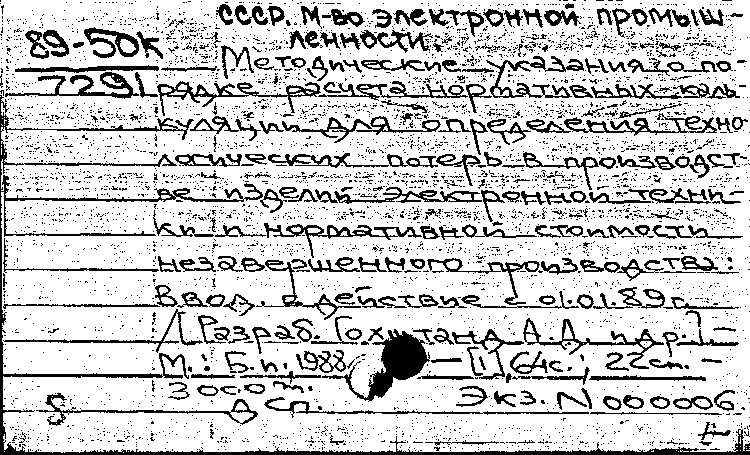 СССР. М-во электронной промыш-
89-50к
ленности.
7291
Методические указания о по-
рядке расчета нормативных каль-
куляций для определения техно-
логических потерь в производст-
ве изделий электронной техни-
ки и нормативной стоимости
незавершенного производства:
Ввод. в действие с 01.01.89 г.
/[Разраб. А.Д. и др.]. —
М.: Б.и., 1988 — [1], 64 с.; 22 см. —
300 экз.
ДСП. Экз. N 000006